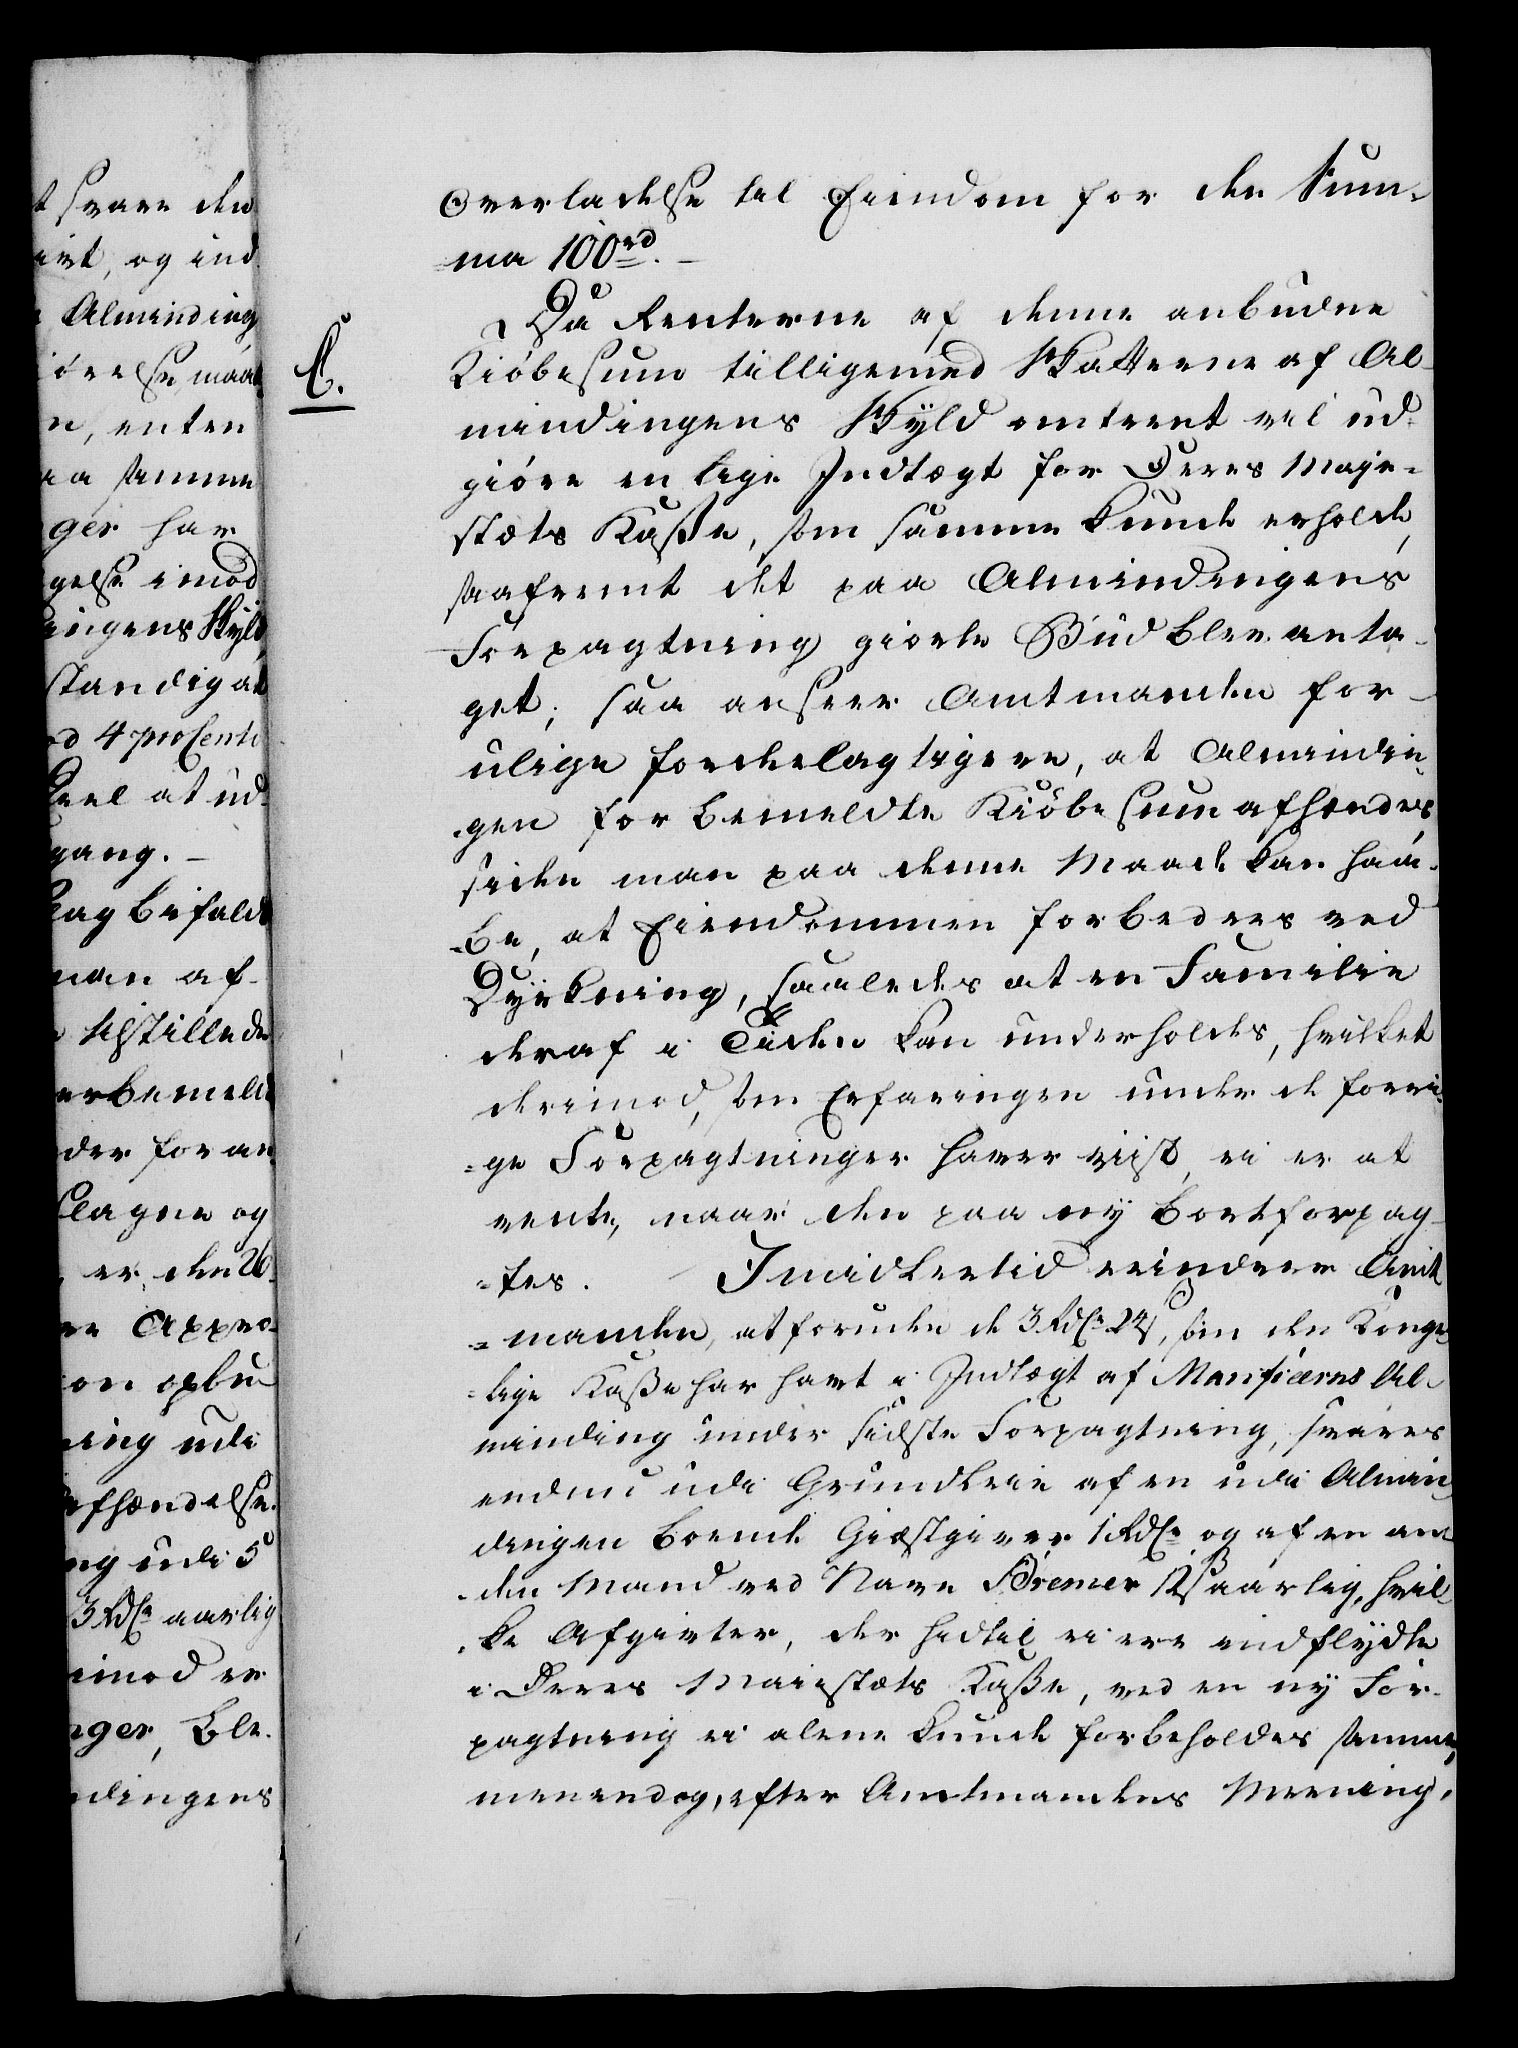 t svare den
ivt, og ind
Alminding
iörelse, maat
n, enten
aa samme
ger har
gelse imod
ingens Skyld
standig at
od 4 proCento
Deel at ud-
gang. -
Lag bifaldt
man af-
Opstillede
erbemeldt
der foran
Clagne og
er den 26
re Appro-
on opbu-
ning udi
afhændelse.
ng udi 5
3 Rdlr aarlig
imod er
nger, ble-
ndingens
Overladelse til Eiendom for den Sum-
=ma 100 rd. -
C.
Da Renterne af denne anbudne
Kiöbesum tilligemed Skatterne af Al-
mindingens Skyld omtrent vil ud-
giöre en lige Indtægt for Deres Maje-
stæts Kasse, som samme kunde erholde,
saafremt det paa Almindingens
Forpagtning giorte Bud blev anta-
get; saa anseer Amtmanden for
ulige fordelagtigere, at Almindin-
gen for bemeldte Kiöbesum afhændes,
siden man paa denne Maade kan haa-
be, at Eiendommen forbedres ved
Dyrkning, saaledes at en Familie
deraf i Tiden kan underholdes, hvilket
derimod, som Erfaringen under de forri-
=ge Forpagtninger haver viist, ei er at
vente, naar den paa ny bortforpag-
=tes. Imidlertid erindrer Amt
=manden, at foruden de 3 Rdlr 24 s, som den Konge-
=lige Kasse har havt i Indtægt af Manfiærns Al-
minding under sidste Forpagtning, svares
endnu udi Grundleie af en udi Almin
dingen boende Giæstgiver 1 Rdlr og af en an-
den Mand ved Navn Bremer 12 s aarlig, hvil-
ke Afgivter, der hidtil ei ere indflydte
i Deres Maiestæts Kasse, ved en ny For-
pagtning ei alene kunde forbeholdes samme,
men endog, efter Amtmandens Meening,